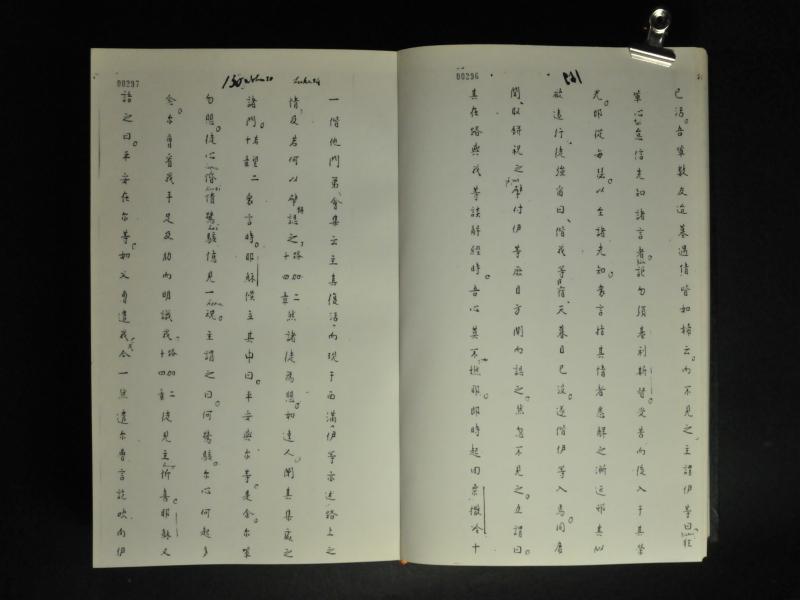 00296
已活。吾輩數友造墓遇情皆如婦云。而不見之。主謂伊等曰。狂
輩。心怠信先知諸言者。詎勿須基利斯督。受苦而後入于其榮
光。耶從每瑟。以至諸先知眾言指其情者悉解之。漸近邨。其似
欲遠行。徒強留曰。偕我等宿。天暮日已沒。遂偕伊等入焉。同席
間。取餅祝之擘付伊等。厥目方開而認之。然忽不見之。互謂曰。
其在路與我等談解經時。吾心其不燃耶。即時起回柔撒冷。十
00297
一偕他門弟會集云主真復活。而現于西滿。伊等亦述路上之
情。及若何以擘餅認之。路加二十四章然諸徒為懼。如達人。閉其集處之
諸門。若望二十章眾言時。耶穌倐立其中曰。平安與爾等。是余。爾輩
勿懼。徒心驚駭。見一魂。主謂之曰。何驚駭。爾心何起多
念。爾看我手足及肋而明識我。路加二十四章徒見主忻喜。耶穌又
語之曰。平安在爾等。如父遣我。今一然遣爾曹言訖吹向伊